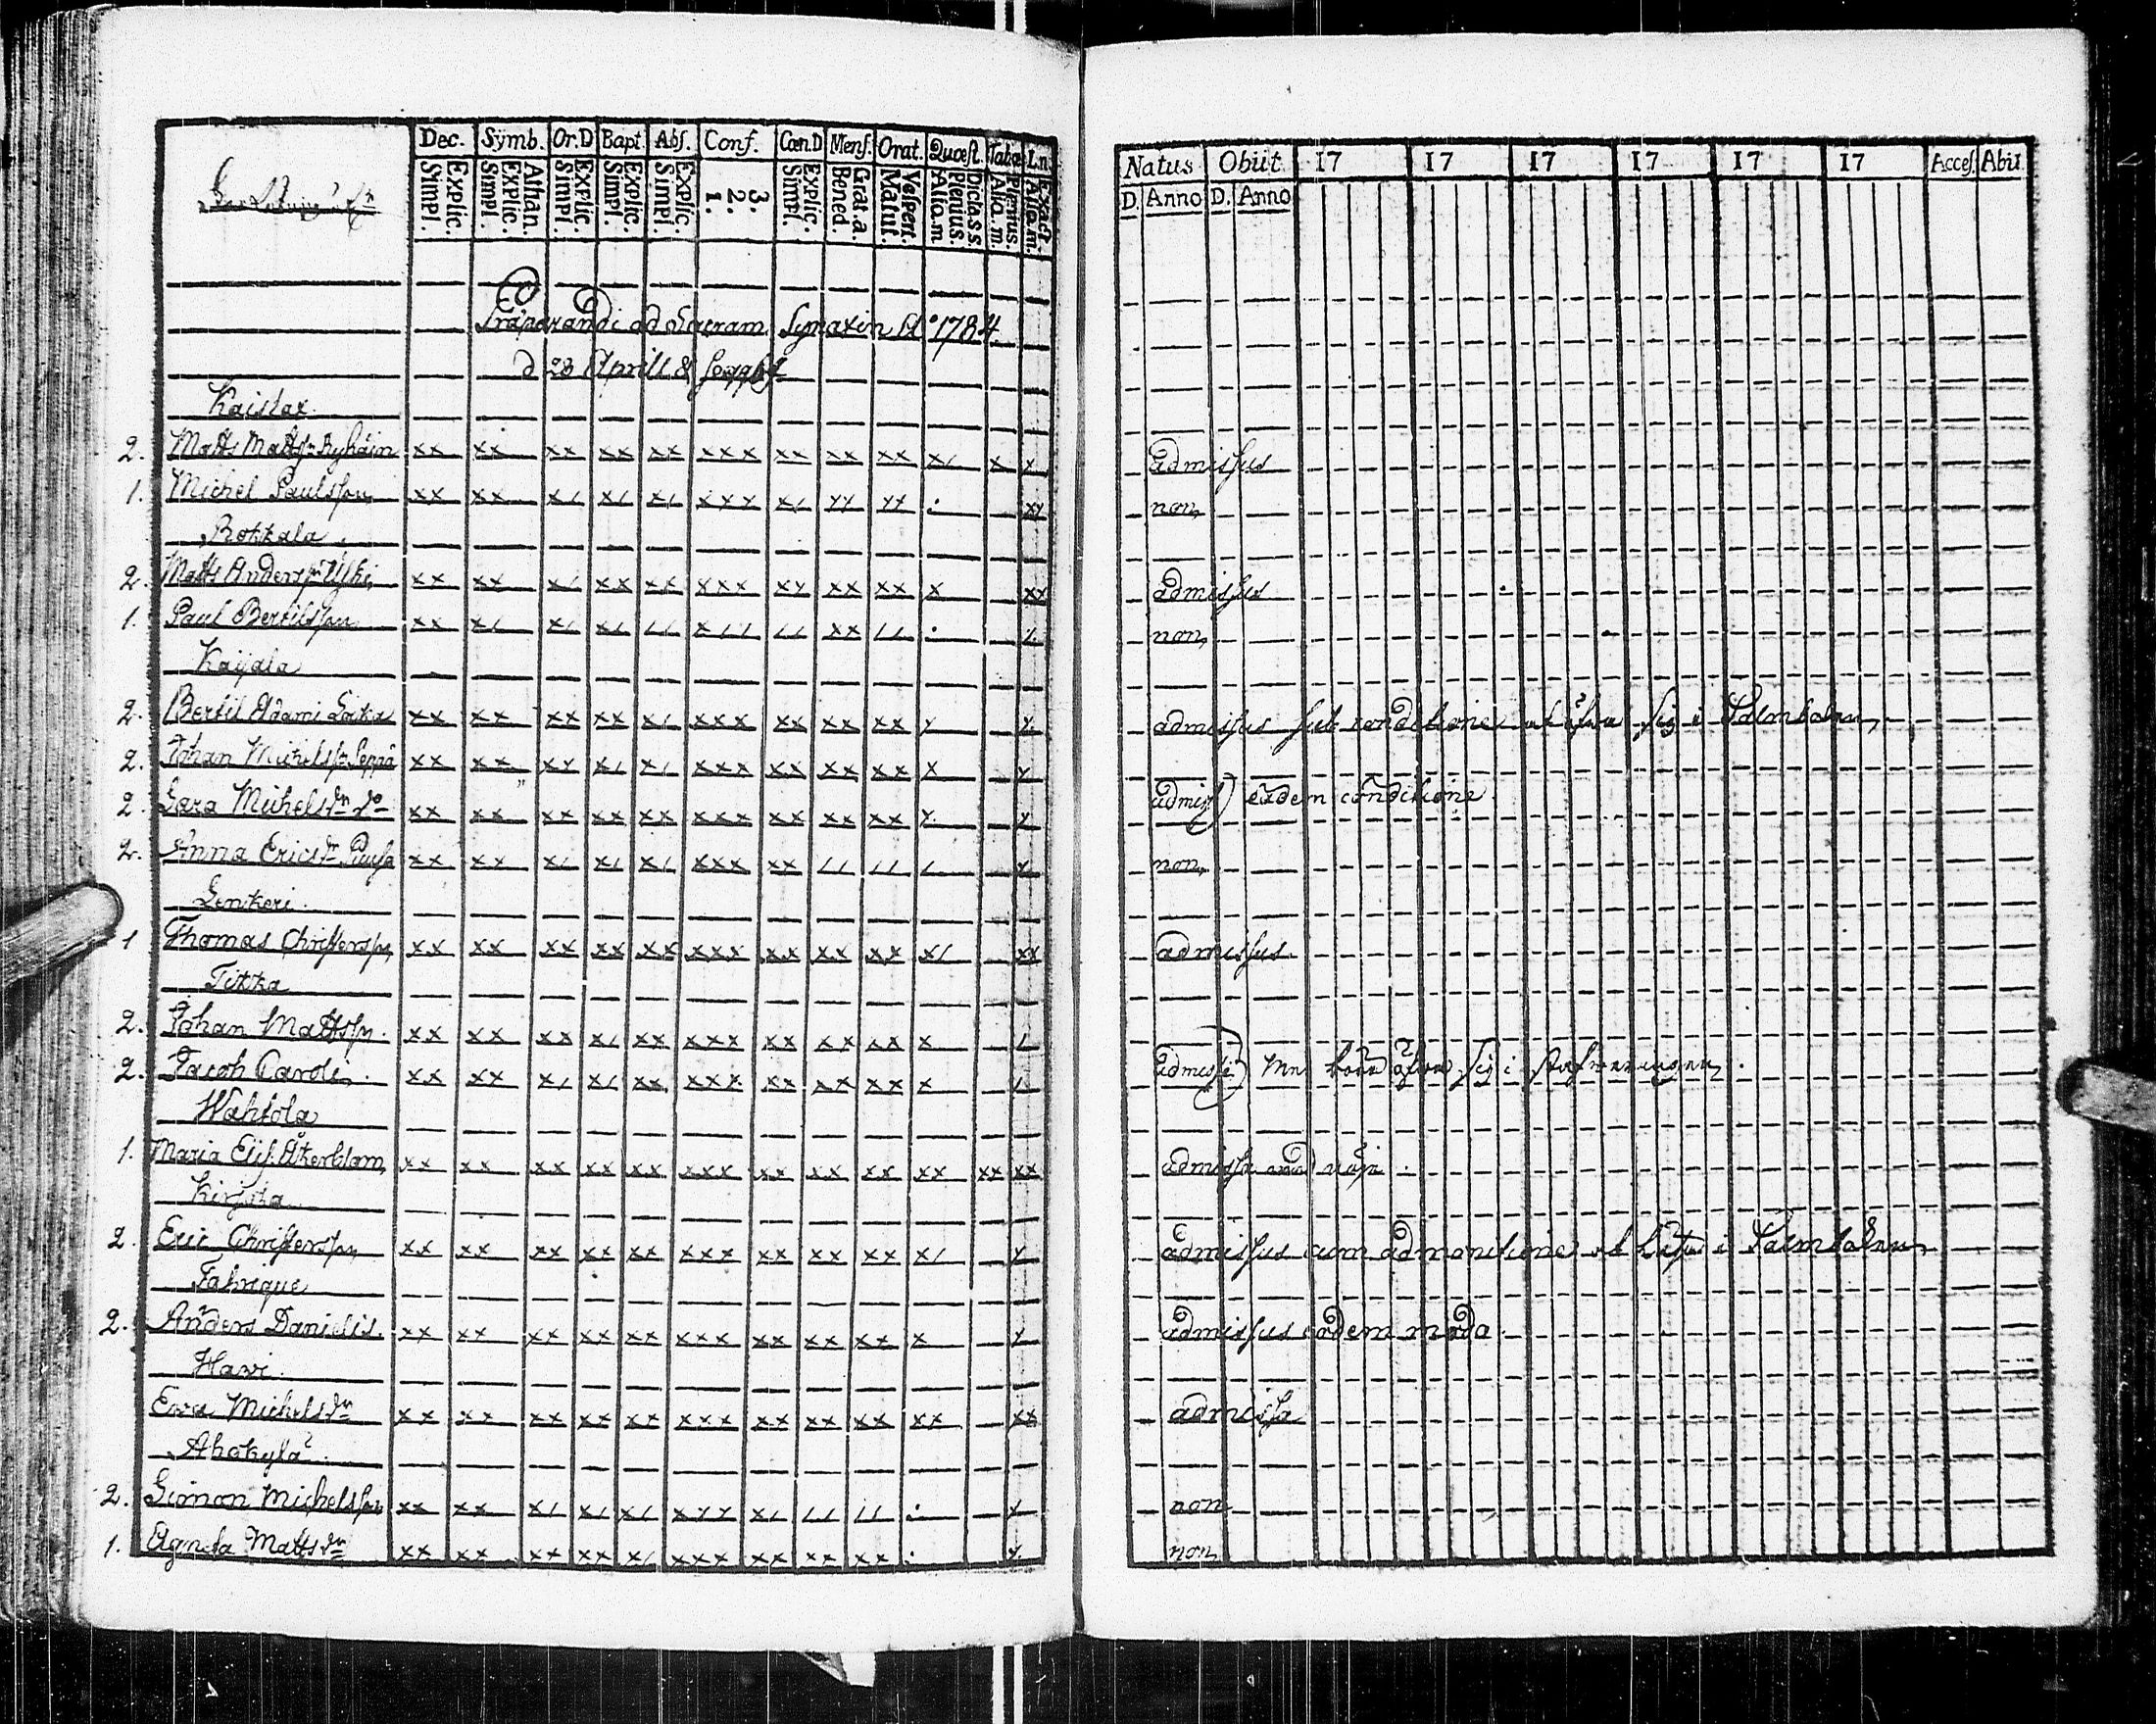 Dec. Symb. Or.D Bapt. Abs. Conf. Cœn.D Mens. Orat. Quæst. Tabæ Ln.
Explic. Simpl. Athan. Explic. Simpl. Explic. Simpl. Explic. Simpl. Explic. Simpl. 3. 2. 1. Explic. Simpl. Grat.a. Bened. Vespert. Matut. Dicta s s. Plenius. Alio.m Plenius. Alia.m. Exact. Alio.m.
Præparandi ad Sacram Synaxin Aº 1784
d 23 Aprill &
Kaislax
2. Matts Mattsn Ryhäin xx xx xx xx xx xxx xx xx xx x/ x x
1. Michel Paulsson xx xx x/ x/ x/ xxx x/ yy yy . xy
Rokkala
2. Matts Anderssn Yski xx xx x/ xx xx xxx xy xx xx x xx
1. Paul Bertilsson xx x/ x/ x/ // x// // xx // . /.
Kaijala
2. Bertil Adami xx xx xx xx x/ xxx xx xx xx y y
2. Johan Michelssn Seppä xx xx xy x/ x/ xxx xx xx xx x y
2. Sara Michelsdn do xx xx xx xx xx xxx xx xx xx y y
2. Anna Ericsdr xx xx x/ x/ x/ xxx xx // // / y
Lenkeri
1 Thomas Christersson xx xx xx xx xx xxx xx xx xx x/ xx
Tikka
2. Johan Mattsson xx xx xx x/ xx xxx xx xx xx x /
2. Jacob Caroli xx xx x/ x/ xx xxx xx xx xx x /
Wahtola
1. Maria Elis. Åkerblom xx xx xx xx xx xxx xx xx xx xx xx xx
Kirjola
2. Eric Christersson xx xx xx xx xx xxx xx xx xx x/ y
Fabrique
2. Anders Danielis xx xx xx xx xx xxx xx xx xx x y
Hawi
Ewa Michelsdn xx xx xx xx xx xxx xx xx xx xx xx
Ahokylä
2. Simon Michelsson xx xx x/ x/ x/ xyy x/ // // . y
1. Agneta Mattsdn xx xx xx xx x/ xxx xx xx xx . y
Natus Obiit. 17 17 17 17 17 17 Acces. Abii
D. Anno D. Anno
admissus
non
admissus
non
admissus sub conditione at öfwa sig i Psalmboken
admiss) eadem conditione
non
admissus
admissi) Mn borde öfwa sig i
admissa med nöje
admissus cum admonitione at i Psalmboken
admissus eodem modo
admissa
non
non